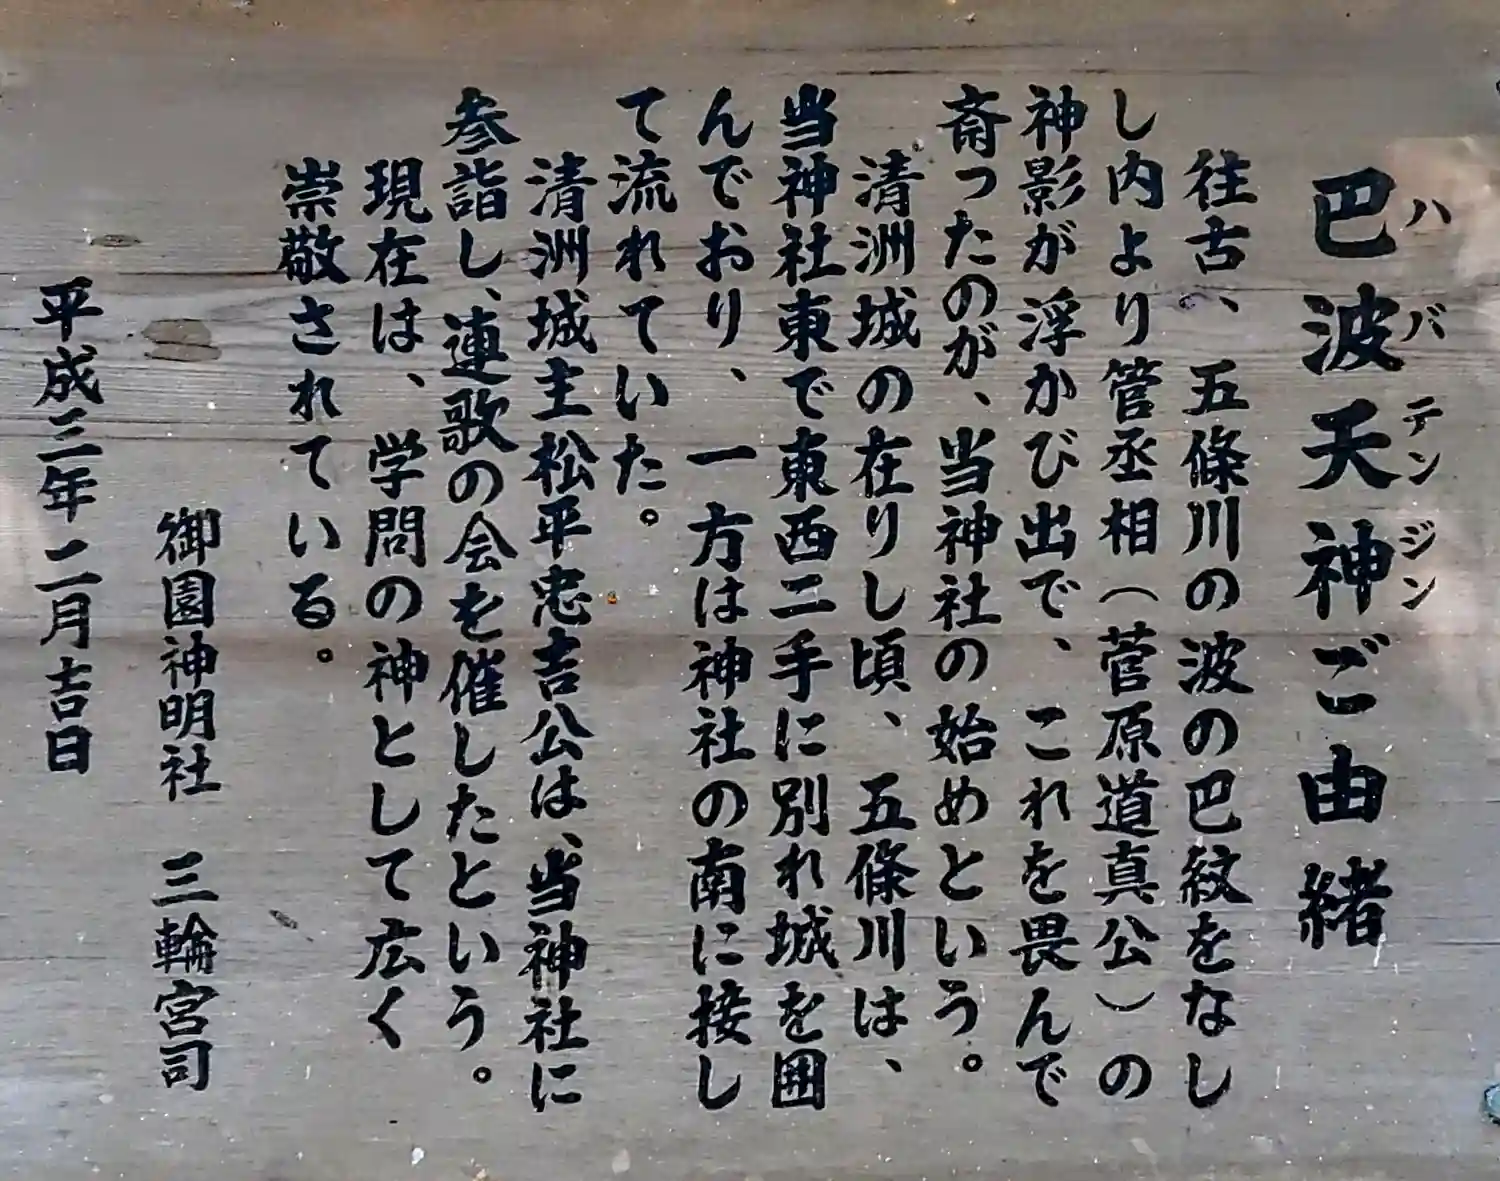 巴波天神ご由緒
ハバテンジン
往古、五條川の波の巴紋をなし
し内より管丞相（菅原道真公）の
神影が浮かび出で、これを畏んで
斎ったのが、当神社の始めという。
清洲城の在りし頃、五條川は、
当神社東で東西二手に別れ城を囲
んでおり、一方は神社の南に接し
て流れていた。
清洲城主松平忠吉公は、当神社に
参詣し、連歌の会を催したという。
現在は、学問の神として広く
崇敬されている。
御園神明社 三輪宮司
平成三年二月吉日